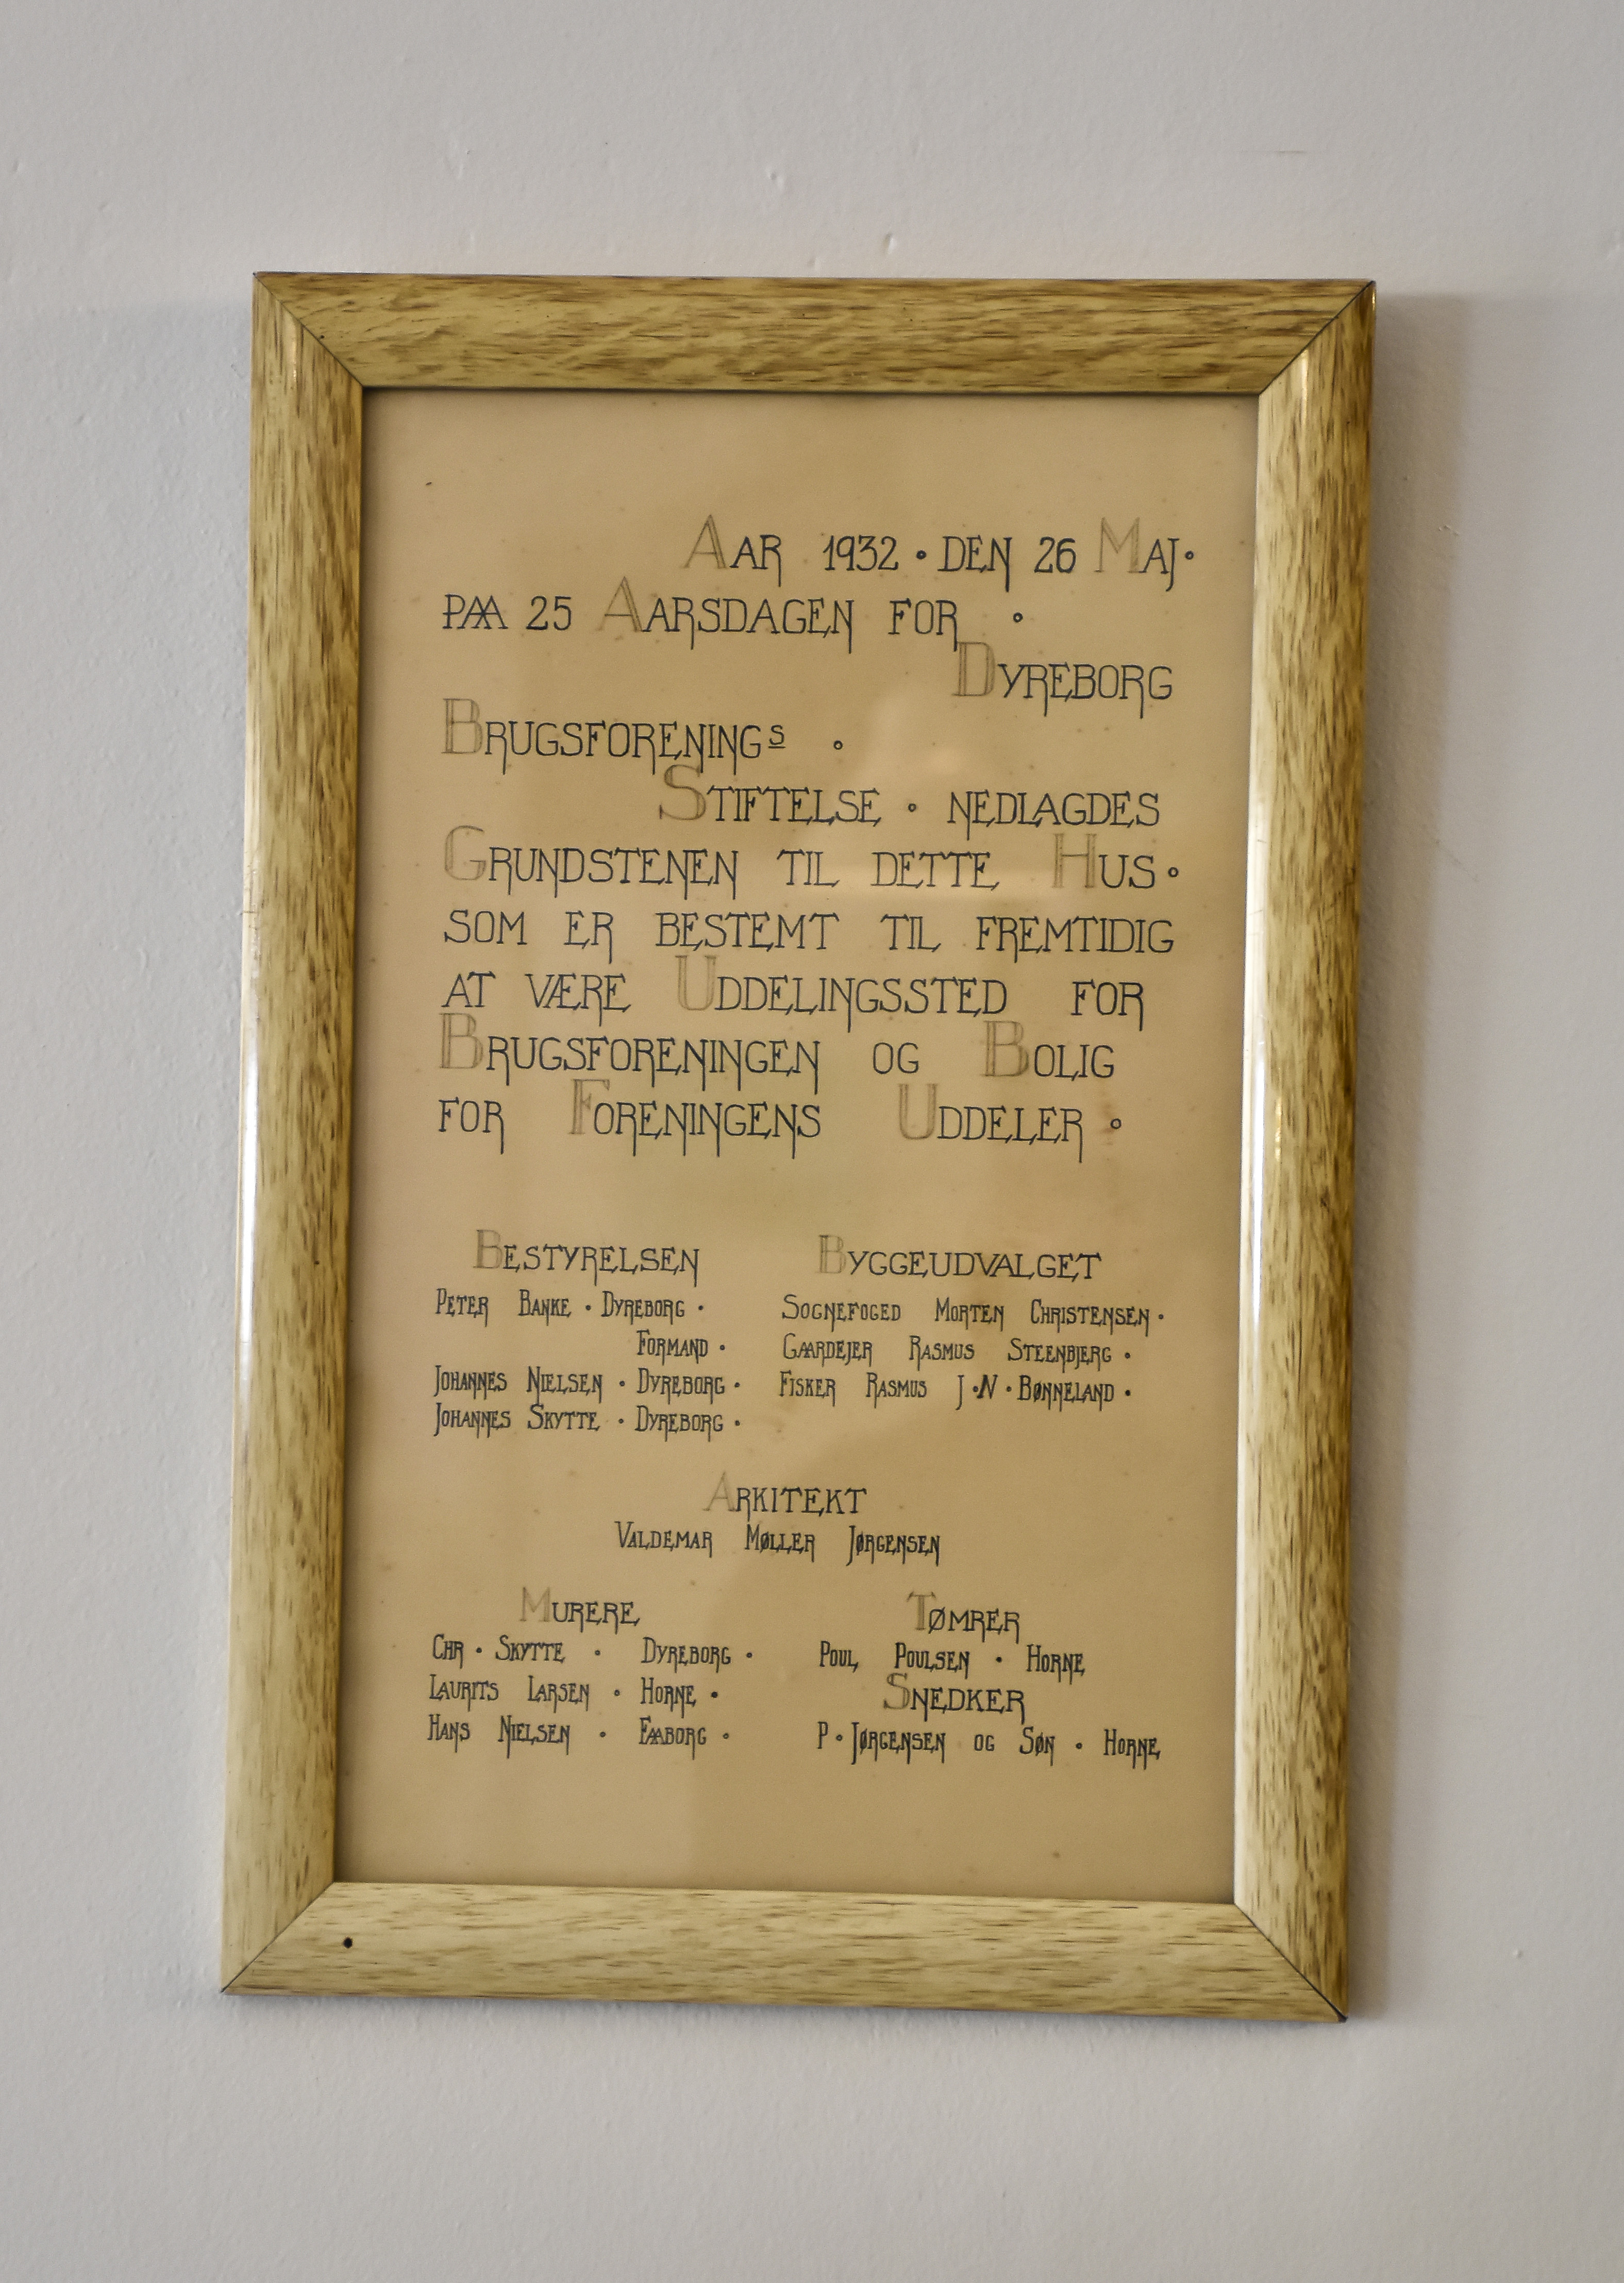 AAR 1932 · DEN 26 MAJ ·
PAA 25 AARSDAGEN FOR ·
DYREBORG
BRUGSFORENINGS ·
STIFTELSE · NEDLAGDES
GRUNDSTENEN TIL DETTE HUS ·
SOM ER BESTEMT TIL FREMTIDIG
AT VÆRE UDDELINGSSTED FOR
BRUGSFORENINGEN OG BOLIG
FOR FORENINGENS UDDELER ·
BESTYRELSEN
PETER BANKE · DYREBORG ·
FORMAND ·
JOHANNES NIELSEN · DYREBORG ·
JOHANNES SKYTTE · DYREBORG ·
BYGGEUDVALGET
SOGNEFOGED MORTEN CHRISTENSEN ·
GAARDEJER RASMUS STEENBJERG ·
FISKER RASMUS J · N · BØNNELAND ·
ARKITEKT
VALDEMAR MØLLER JØRGENSEN
MURERE
CHR · SKYTTE · DYREBORG ·
LAURITS LARSEN · HORNE ·
HANS NIELSEN · FAABORG ·
TØMRER
POUL POULSEN · HORNE
SNEDKER
P · JØRGENSEN OG SØN · HORNE